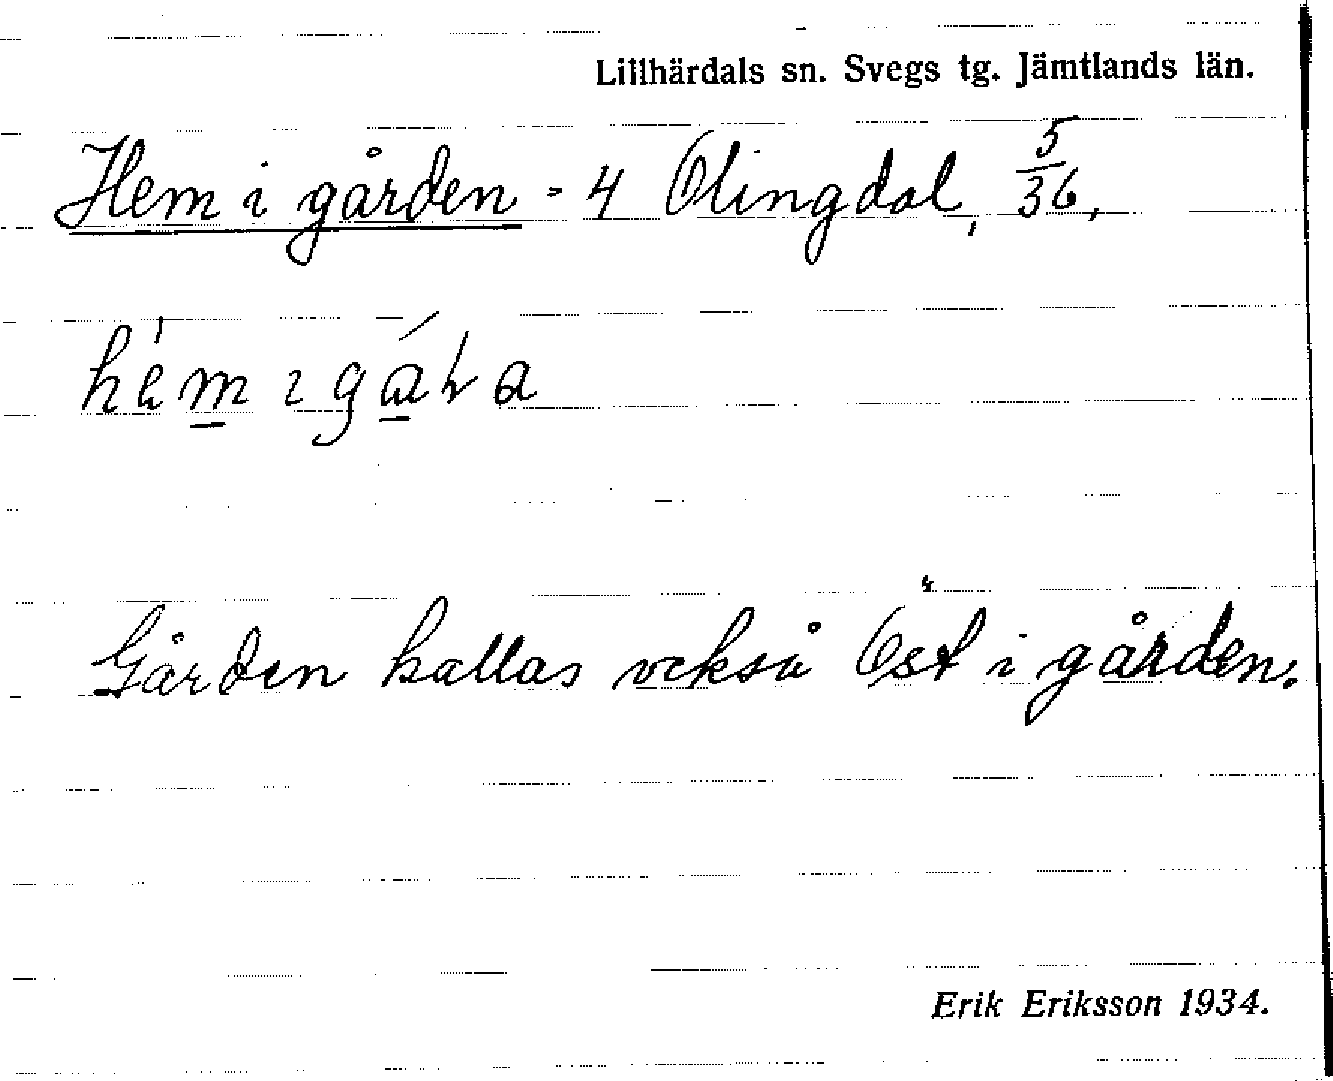 Lillhärdals sn. Svegs tg. Jämtlands län.
Hem i gården - 4 Olingdal, 5/36,
Gården kallas också Öst i gården.
Erik Eriksson 1934.